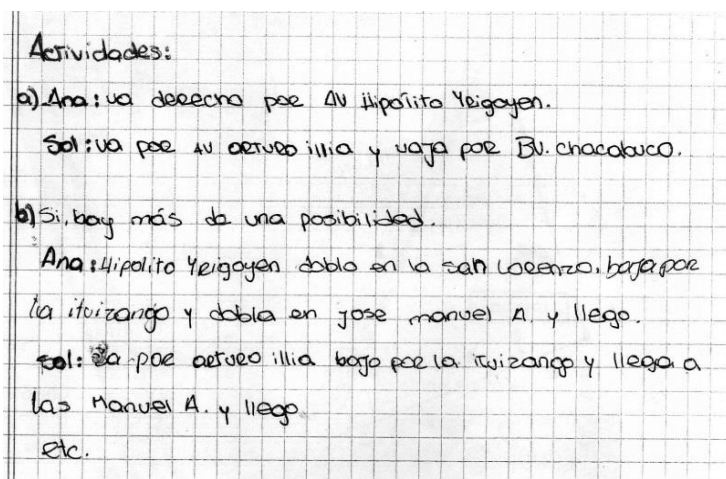 Actividades:
a) Ana: va derecho por AV Hipolito Yrigoyen.
Sol: va por AV arturo illia y vaja por BV. chacabuco.
b) Si, hay más de una posibilidad.
Ana: Hipolito Yrigoyen doblo en la san Lorenzo, baja por
la ituizango y dobla en jose manuel A. y llego.
Sol: Va por arturo illia bajo por la ituizango y llega a
las Manuel A. y llego.
etc.